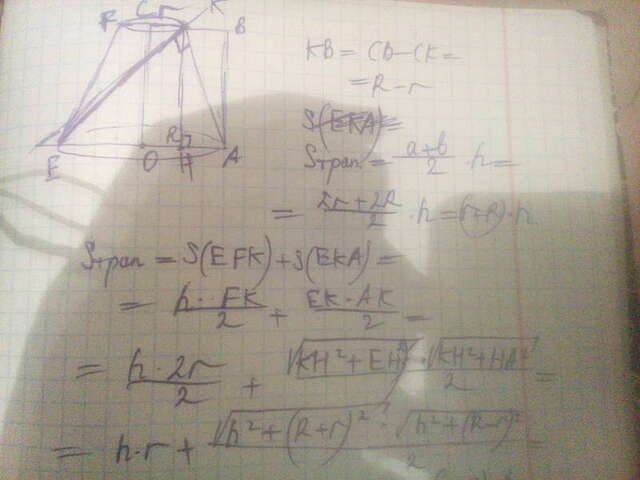 F C r K B
E O R H A
KB = CB-CK =
= R-r
S(EKA)=
Sтрап = a+b/2 · h =
= 2r+2R/2 · h = (r+R)·h
Sтрап = S(EFK)+S(EKA) =
= h·FK/2 + EK·AK/2 =
= h·2r/2 + √KH²+EH² · √KH²+HA²/2 =
= h·r + √h²+(R+r)² · √h²+(R-r)²/2 =